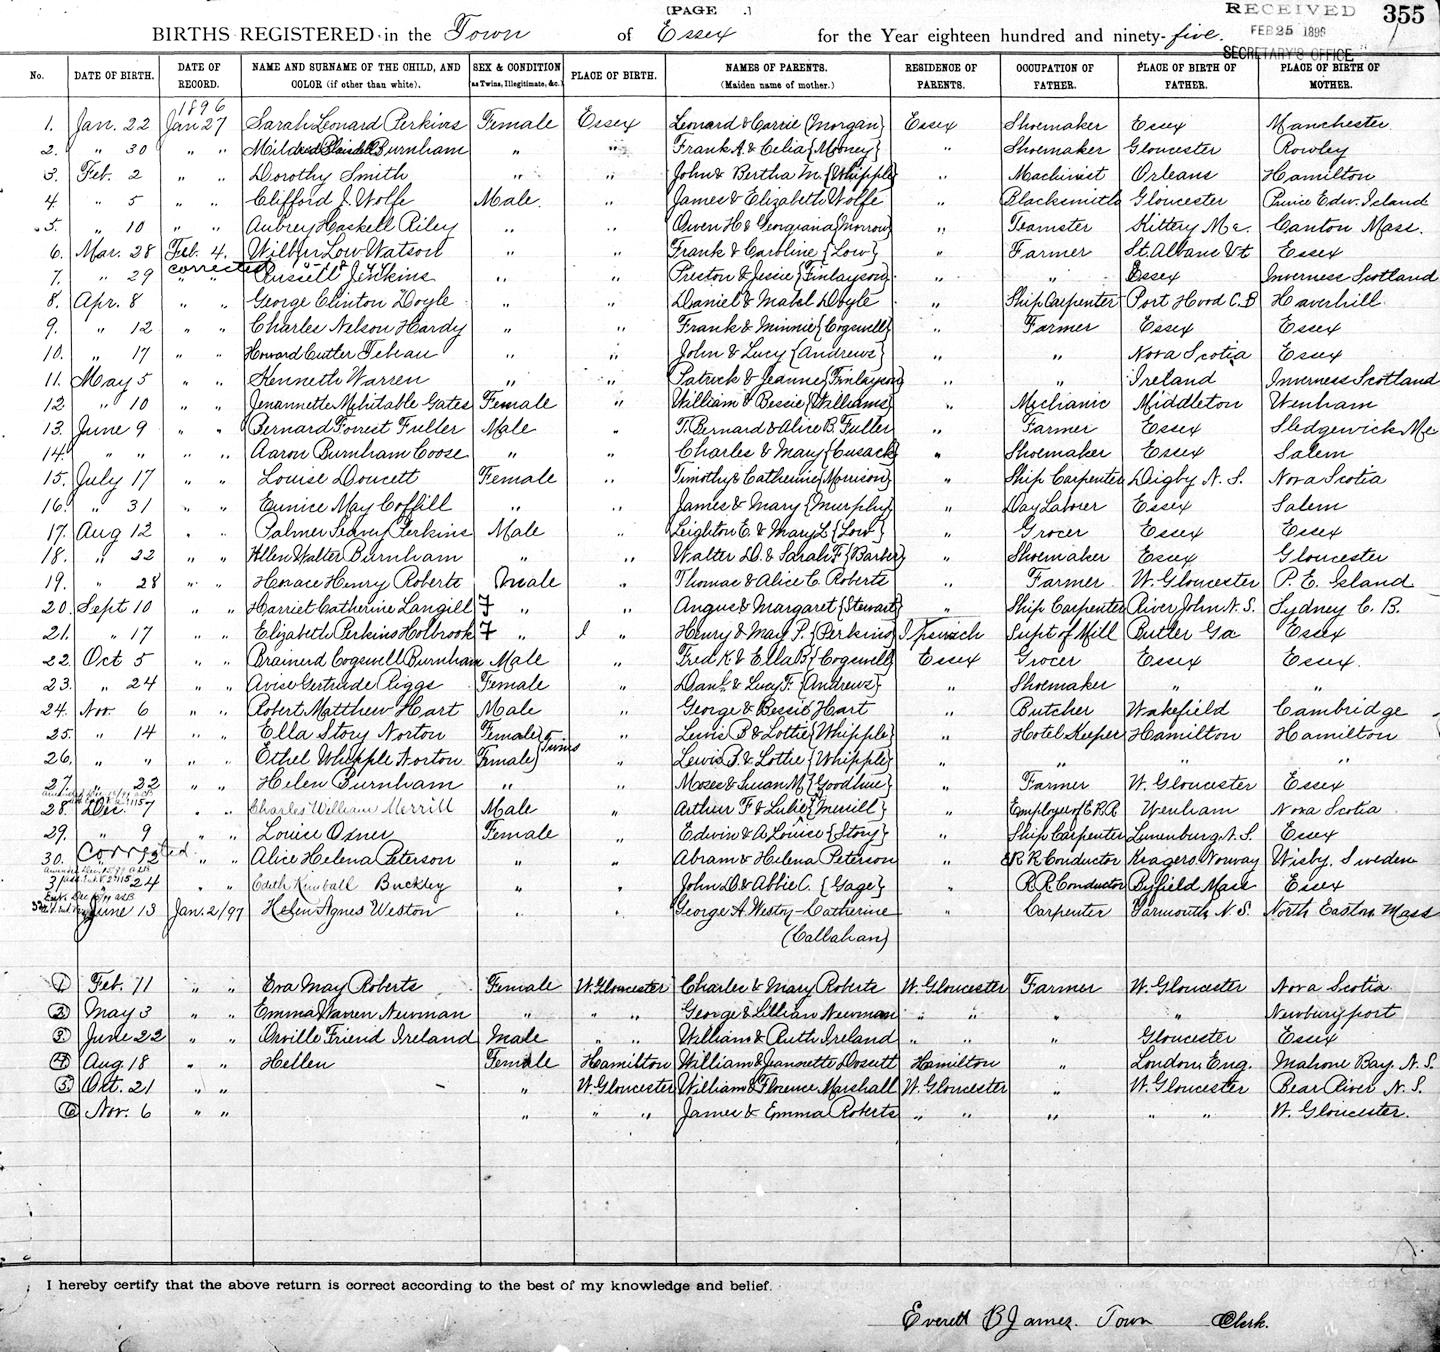 [PAGE .]
RECEIVED
355
FEB 25 1896
SECRETARY'S OFFICE
BIRTHS REGISTERED in the Town of Essex for the Year eighteen hundred and ninety-five.
No. DATE OF BIRTH. DATE OF RECORD. NAME AND SURNAME OF THE CHILD, AND COLOR (if other than white). SEX & CONDITION (as Twins, Illegitimate, &c.) PLACE OF BIRTH. NAMES OF PARENTS. (Maiden name of mother.) RESIDENCE OF PARENTS. OCCUPATION OF FATHER. PLACE OF BIRTH OF FATHER. PLACE OF BIRTH OF MOTHER.
1896
1. Jan. 22 Jan 27 Sarah Leonard Perkins Female Essex Leonard & Carrie {Morgan} Essex Shoemaker Essex Manchester
2. " 30 " " Mildred Burnham " " Frank A. & Celia {Mooney} " Shoemaker Gloucester Rowley
3. Feb. 2 " " Dorothy Smith " " John & Bertha M. {Whipple} " Machinist Orleans Hamilton
4 " 5 " " Clifford J. Wolfe Male. " James & Elizabeth Wolfe " Blacksmith Gloucester Prince Edw. Island
5. " 10 " " Aubrey Haskell Riley " " Owen H & Georgiana {Morrow} " Teamster Kittery Me. Canton Mass.
6. Mar. 28 Feb. 4. Wilbur Low Watson " " Frank & Caroline {Low} " Farmer St. Albans Vt Essex
corrected
7. " 29 " " Russell Jenkins " " Preston & Jesie {Finlayson} " " Essex Inverness Scotland
8. Apr. 8 " " George Clinton Doyle " " Daniel & Mabel Doyle " Ship Carpenter Port Hood C.B Haverhill
9. " 12 " " Charles Nelson Hardy " " Frank & Minnie {Cogswell} " Farmer Essex Essex
10. " 17 " " Howard Cutler Tebeau " " John & Lucy {Andrews} " " Nova Scotia Essex
11. May 5 " " Kenneth Warren " " Patrick & Jeanne {Finlayson} " " Ireland Inverness Scotland
12 " 10 " " Jenannette Mehitable Gates Female " William & Bessie {Williams} " Mechanic Middleton Wenham
13. June 9 " " Bernard Forrest Fuller Male " T. Bernard & Alice B. Fuller " Farmer Essex Sledgewick Me
14. " " " " Aaron Burnham Coose " " Charles & Mary {Cusack} " Shoemaker Essex Salem
15. July 17 " " Louise Doucett Female " Timothy & Catherine {Morrison} " Ship Carpenter Digby N. S. Nova Scotia
16. " 31 " " Eunice May Coffill " " James & Mary {Murphy} " Day Laborer Essex Salem
17. Aug 12 " " Palmer Perkins Male " Leighton E. & Mary L {Low} " Grocer Essex Essex
18. " 22 " " Walter Burnham " " Walter D. & Sarah F {Barker} " Shoemaker Essex Gloucester
19. " 28 " " Horace Henry Roberts Male " Thomas & Alice C. Roberts " Farmer W. Gloucester P. E. Island
20. Sept 10 " " Harriet Catherine Langill F " " Angus & Margaret {Stewart} " Ship Carpenter River John N. S. Sydney C. B.
21. " 17 " " Elizabeth Perkins Holbrook F " I " Henry & May P. {Perkins} Ipswich Supt of Mill Butler Ga Essex
22. Oct 5 " " Brainerd Cogswell Burnham Male " Fred K. & Ella B {Cogswell} Essex Grocer Essex Essex.
23. " 24 " " Avise Gertrude Riggs Female " Danl. & Lucy F. {Andrews} " Shoemaker " "
24. Nov. 6 " " Robert Matthew Hart Male " George & Bessie Hart " Butcher Wakefield Cambridge
25. " 14 " " Ella Story Norton Female} Twins " Lewis B & Lottie {Whipple} " Hotel Keeper Hamilton Hamilton
26. " " " " Ethel Whipple Norton Female} " Lewis B. & Lottie {Whipple} " " " "
27. " 22 " " Helen Burnham " " Moses & Susan M {Goodhue} " Farmer W. Gloucester Essex
28. Dec. 7 " " Charles William Merrill Male " Arthur F & Lulie {Merrill} " Employee of E.R.R Wenham Nova Scotia
29. " 9 " " Louise Osner Female " Edwin & A. Louise {Story} " Ship Carpenter Lunenburg, N. S. Essex
Corrected
30. " 12 " " Alice Helena Peterson " " Abram & Helena Peterson " R R Conductor Kragero Norway Wisby, Sweden
31 " 24 " " Edith Kimball Buckley " " John D. & Abbie C. {Gage} " R. R. Conductor Byfield Mass Essex
32 June 13 Jan. 2/97 Helen Agnes Weston " " George A. Weston-Catherine " Carpenter Yarmouth, N. S. North Easton, Mass
(Callahan)
1 Feb. 11 " " Eva May Roberts Female W. Gloucester Charles & Mary Roberts W. Gloucester Farmer W. Gloucester Nova Scotia
2 May 3 " " Emma Warren Newman " " " George & Lillian Newman " " " " Newburyport
3 June 22 " " Orville Friend Ireland Male " " William & Ruth Ireland " " " Gloucester Essex
4 Aug. 18 " " Hellen Female Hamilton William & Jeannette Dosett Hamilton " London, Eng. Mahone Bay, N. S.
5 Oct. 21 " " " W. Gloucester William & Florence Marshall W. Gloucester " W. Gloucester Bear River N. S.
6 Nov. 6 " " " " " James & Emma Roberts " " " " " W. Gloucester.
I hereby certify that the above return is correct according to the best of my knowledge and belief.
Everett B James. Town Clerk.